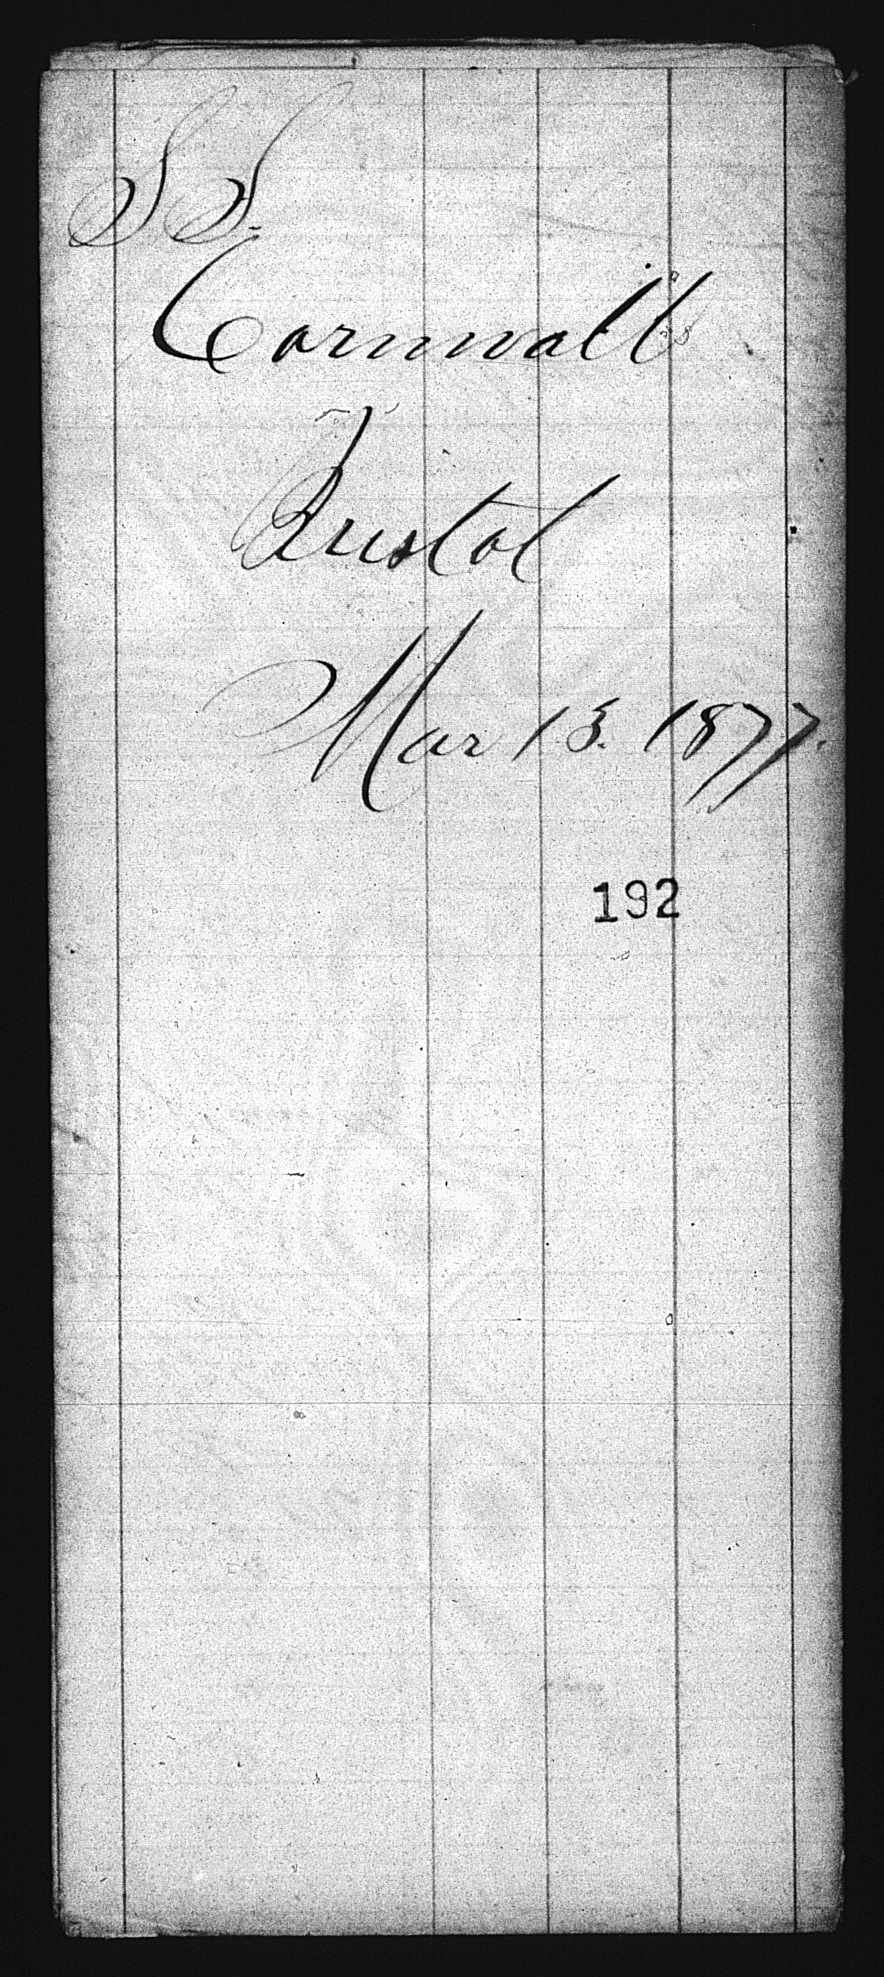 S S.
Cornwall
Bristol
Mar 13. 1877.
192